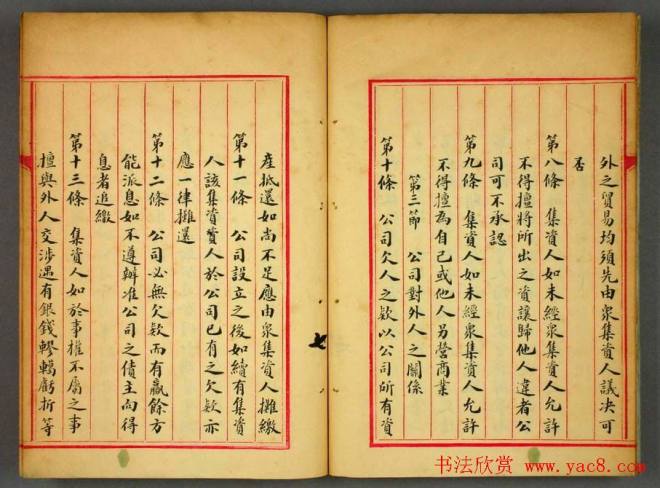 外之貿易均須先由衆集資人議決可
否
第八條　集資人如未經衆集資人允許
不得擅將所出之資讓歸他人違者公
司可不承認
第九條　集資人如未經衆集資人允許
不得擅為自己或他人另營商業
第三節　公司對外人之關係
第十條　公司欠人之欵以公司所有資
產抵還如尚不足應由衆集資人攤繳
第十一條　公司設立之後如續有集資
人該集資人於公司已有之欠欵亦
應一律攤還
第十二條　公司必無欠欵而有贏餘方
能派息如不遵辦准公司之債主向得
息者追繳
第十三條　集資人如於事權不屬之事
擅與外人交涉遇有銀錢轇轕虧折等
七
书法欣赏
www.yac8.com